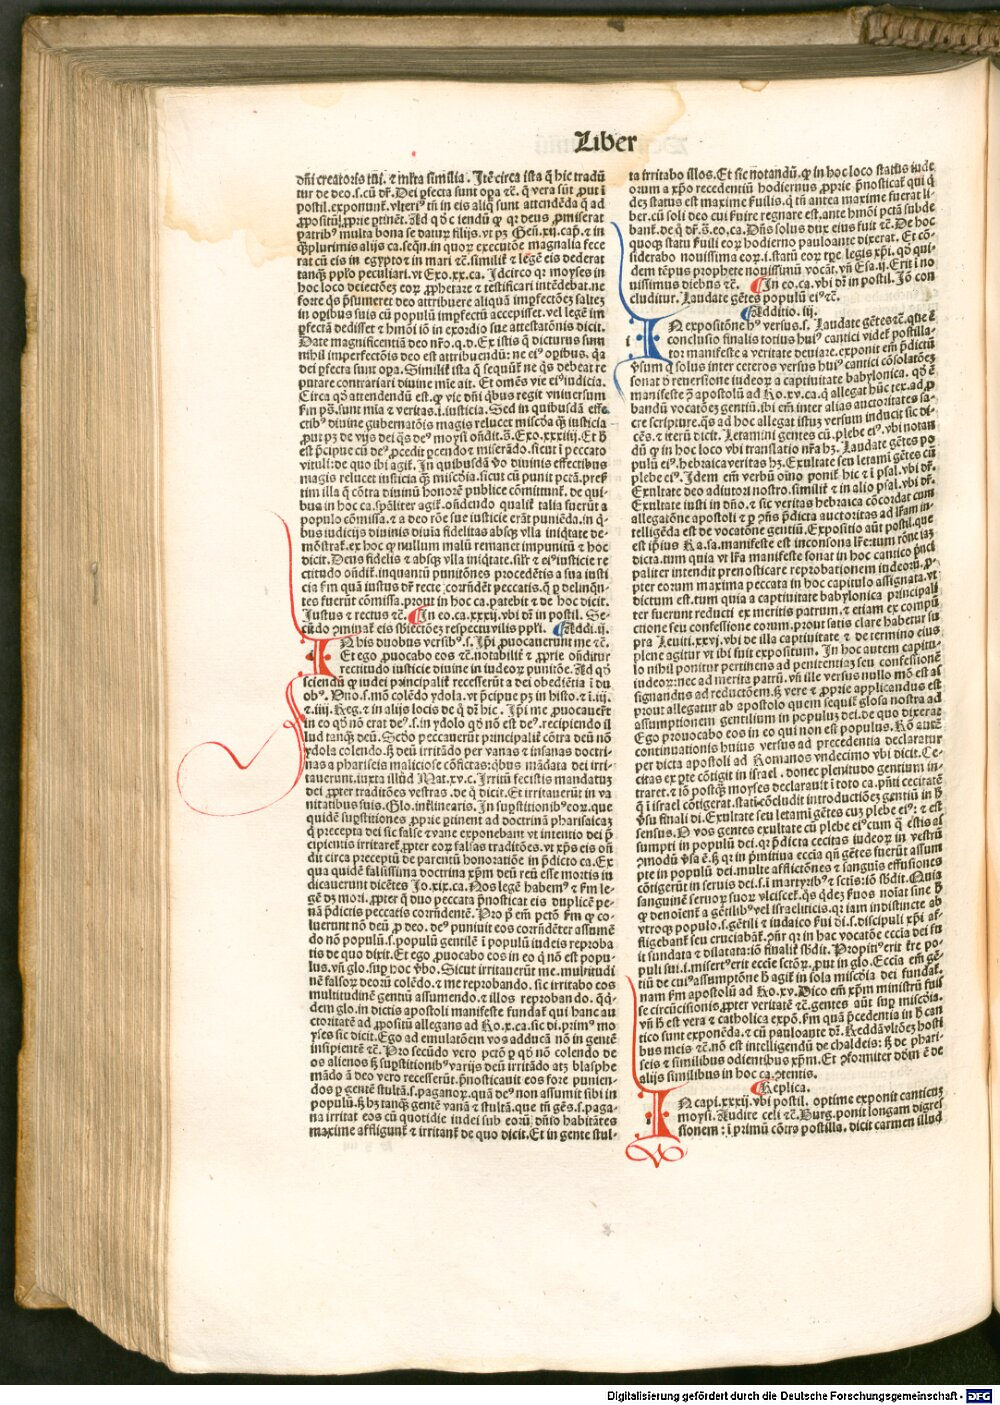 Liber
dñi creatoris tui. ⁊ mlta similia. Itē circa ista q̄ hic tradū
tur de deo.s.cū dr̄. Dei ꝑfecta sunt oꝑa ⁊c̄. q̄ vera sūt ꝓut ī
postil.exponunt̄.
patrib⁹ multa bona se daturꝯ filijs. vt pꝫ Geñ.xij.cap̄.⁊ in
rat cū eis in egypto ⁊ in mari ⁊c̄.similit̄ ⁊ legē eis dederat
tanq̄ꝫ pplo peculiari. vt Exo.xx.ca. Idcirco qꝛ moyses in
in oꝑibus suis cū populū imꝑfectū accepisset. vel legē im
ꝑfectā dedisset ⁊ hmōi iō in exordio sue attestatōnis dicit.
Date magnificentiā deo nr̄o.q.d.Ex istis q̄ dicturus sum
nihil imperfectōis deo est attribuendū: ne ei⁹ oꝑibus. q̄a
dei ꝑfecta sunt oꝑa. Similit̄ ista q̄ sequūt̄ ne q̄s debeat re
putare contrariari diuine mīe ait. Et omēs vie ei⁹ iudicia.
Circa qō attendendū est. ꝙ vie dñi q̄bus regit vniuersum
s̄m pō. sunt mīa ⁊ veritas.i.iusticia. Sed in quibusdā effe
ctib⁹ diuine gubernatōis magis relucet miscd̄a q̄ꝫ iusticia
est p̄cipue cū de⁹ ꝓcedit ꝑcendo ⁊ miserādo.sicut ī peccato
vituli: de quo ibi agit̄. In quibusdā vō diuinis effectibus
magis relucet iusticia q̄ꝫ miscd̄ia.sicut cū punit pctā.preẜ
tim illa q̄ cōtra diuinū honorē publice cōmittunt̄. de qui
bus in hoc ca. sp̄aliter agit̄.oñdendo qualit̄ talia fuerūt a
populo cōmissa.⁊ a deo rōe sue iusticie erāt puniēda.in q̄
bus iudicijs diuinis diuia fidelitas absq; vlla iniq̄tate de
mōstrat̄.ex hoc ꝙ nullum malū remanet impunitū ⁊ hoc
dicit. Deus fidelis ⁊ absq; vlla iniq̄tate. silr̄ ⁊ ei⁹ iusticie re
ctitudo oñdit̄.inquantū punitōnes procedētis a sua iusti
cia s̄m quā iustus dr̄ recte corrn̄dēt peccatis.q̄ ꝑ delinqn̄
tes fuerūt cōmissa.prout in hoc ca.patebit ⁊ de hoc dicit.
Iustus ⁊ rectus ⁊c̄. ¶ In eo.ca.xxxij.vbi dr̄ in postil. Se
cūdo ꝯminat̄ eis sb̄iectōeꝫ respectu vilis ppli. ¶ Addi.ij.
IN his duobus versib⁹.s. Ip̄i ꝓuocauerunt me ⁊c̄.
Et ego ꝓuocabo eos ⁊c̄.notabilit̄ ⁊ ꝓprie oñditur
rectitudo iusticie diuine in iudeorꝯ punitōe. Ad qō
sciendū ꝙ iudei principalit̄ recesserūt a dei obediētia ī du
ob⁹. Vno.s.mō colēdo ydola.vt p̄cipue pꝫ in histo.⁊ ī.iij.
⁊.iiij. Reg.⁊ in alijs locis de q̄ dr̄ hic. Ip̄i me ꝓuocauer̄t
in eo qō nō erat de⁹.s.in ydolo qō nō est de⁹.recipiendo il
lud tanq̄ꝫ deū. Scd̄o peccauerūt principalit̄ cōtra deū nō
ydola colendo. sꝫ deū irritādo per vanas ⁊ insanas doctri
nas a phariseis maliciose cōfictas: q̄bus mādata dei irri
tauerunt.iuxta illud Mat.xv.c. Irritū fecistis mandatuꝫ
dei ꝓpter traditōes vestras.de q̄ dicit. Et irritauerūt in va
nitatibus suis. Glo.inteꝛlinearis. In suꝑstitionib⁹ eorꝯ.que
quidē suꝑstitiones ꝓprie ꝑtinent ad doctrinā pharisaicaꝫ
q̄ precepta dei sic false ⁊ vane exponebant vt intentio dei p̄
cipientis irritaret̄.ꝓpter eorꝯ falsas traditōes.vt xp̄s eis oñ
dit circa preceptū de parentū honoratiōe in p̄dicto ca. Ex
qua quidē falsissima doctrina xp̄m deū reū esse mortis iu
dicauerunt dicētes Io.xix.ca. Nos legē habem⁹ ⁊ s̄m le
gē dꝫ mori.ꝓpter q̄ duo peccata p̄nosticat eis duplicē pe
nā p̄dictis peccatis corrn̄dentē. Pro p̄ em̄ pctō s̄m ꝙ co
luerunt nō deū ꝓ deo. de⁹ puniuit eos corrn̄dēter assumē
do nō populū.s.populū gentilē ī populū iudeis reproba
tis de quo dixit. Et ego ꝓuocabo eos in eo q̄ nō est popu
lus.vn̄ glo.suꝑ hoc v̄bo. Sicut irritauerūt me.multitudi
nē falsorꝯ deorū colēdo.⁊ me reprobando. sic irritabo eos
multitudinē gentiū assumendo.⁊ illos reprobando. q̄q̄
dem glo.in dictis apostoli manifeste fundat̄ qui hanc au
ctoritatē ad ꝓpositū allegans ad Ro.x.ca.sic di.prim⁹ mo
yses sic dicit. Ego ad emulatōem vos adducā nō in gentē
insipientē ⁊c̄. Pro secūdo vero pctō ꝙ qō nō colendo de
os alienos sꝫ suꝑstitionib⁹ varijs deū irritādo atꝫ blasphe
mādo ā deo vero recesserūt.p̄nosticauit eos fore punien
dos ꝑ gentē stultā.s.paganorꝯ.quā de⁹ non assumit sibi in
populū. sꝫ hꝫ tanq̄ꝫ gentē vanā ⁊ stultā.que tn̄ gēs.s.paga
na irritat eos cū quotidie iudei sub eorū dñio habitātes
maxime affligunt̄ ⁊ irritant̄ de quo dicit. Et in gente stul
ta irritabo illos. Et sic notandū.ꝙ in hoc loco status iude
orum a xp̄o recedentiū hodiernus ꝓprie p̄nosticat̄ qui q̄
deꝫ status est maxime s̄uilis.q̄ tn̄ antea maxime fuerat li
ber.cū soli deo cui s̄uire regnare est.ante hmōi pctā subde
bant̄.de q̄ dr̄.s̄.eo.ca. Dñs solus dux eius fuit ⁊c̄. De hoc
quoqꝫ statu s̄uili eorꝯ hodierno pauloante dixerat. Et cō
siderabo nouissima eorꝯ.i.statū eorꝯ tꝑe legis xp̄i. qō qui
dem tēpus prophete nouissimū vocāt.vn̄ Esa.ij. Erit ī no
uissimus diebus ⁊c̄. ¶ In eo.ca.vbi dr̄ in postil. Iō con
cluditur. Laudate gētes populū ei⁹ ⁊c̄.
¶ Additio.iij.
IN expositōne h⁹ versus.s. Laudate gētes ⁊c̄.que ē
conclusio finalis totius hui⁹ cantici videt̄ postilla
tor manifeste a veritate deuiare.exponit em̄ p̄dictū
v̄sum q̄ solus inter ceteros versus hui⁹ cantici cōsolatōeꝫ
sonat ō reuersione iudeorꝯ a captiuitate babylonica. qō ē
manifeste ꝯ̄ apostolū ad Ro.xv.ca.q̄ allegat hūc tex.ad ꝓ
bandū vocatōeꝫ gentiū.ibi em̄ inter alias auctoritates sa
cre scripture.q̄s ad hoc allegat istuꝫ versum inducit sic di
cēs.⁊ iterū dicit. Letamini gentes cū plebe ei⁹.vbi notan
dū ꝙ in hoc loco vbi translatio nr̄a hꝫ. Laudate gētes po
pulū ei⁹.hebraica veritas hꝫ. Exultate seu letami gētes cū
plebe ei⁹. Idem em̄ verbū oīno ponit̄ hic ⁊ ī psal.vbi dr̄.
Exultate deo adiutori nostro.similit̄ ⁊ in alio psal.vbi dr̄.
Exultate iusti in dño.⁊ sic veritas hebraica cōcordat cum
allegatōne apostoli ⁊ ꝑ ꝯn̄s p̄dicta auctoritas ad lr̄am in
telligēda est de vocatōne gentiū. Expositio aūt postil.que
est ip̄ius Ra.sa.manifeste est inconsona lr̄e: tum rōne iaꝫ
dicta.tum quia vt lr̄a manifeste sonat in hoc cantico p̄nci
paliter intendit prenosticare reprobationem iudeorꝯ.ꝓ
pter eorum maxima peccata in hoc capitulo assignata.vt
dictum est.tum quia a captiuitate babylonica principali
ter fuerunt reducti ex meritis patrum.⁊ etiam ex compū
ctione seu confessione eorum.prout satis clare habetur su
pra Leuiti.xxvj.vbi de illa captiuitate ⁊ de termino eius
plene agitur vt ibi fuit expositum. In hoc autem capitu
lo nihil ponitur pertinens ad penitentiaꝫ seu confessionē
iudeorꝯ: nec ad merita patrū.vn̄ ille versus nullo mō est as
signandus ad reductōem. sꝫ vere ⁊ ꝓprie applicandus est
prout allegatur ab apostolo quem sequit̄ glosa nostra ad
assumptionem gentilium in populuꝫ dei.de quo dixerat
Ego prouocabo eos in eo qui non est populus. Rō aūt
continuationis huius versus ad precedentia declaratur
per dicta apostoli ad Romanos vndecimo vbi dicit. Ce
citas ex ꝑte cōtigit in israel. donec plenitudo gentium in
traret.⁊ iō postq̄ꝫ moyses declarauit ī toto ca.p̄nti cecitatē
q̄ ī israel cōtigerat.statī cōcludit introductōeꝫ gentiū in h̄
v̄su finali di. Exultate seu letami gētes cuꝫ plebe ei⁹: ⁊ est
sensus. D vos gentes exultate cū plebe ei⁹ cum q̄ estis as
sumpti in populū dei.qꝛ p̄dicta cecitas iudeorꝯ in vestrū
pte in populū dei.multe afflictōnes ⁊ sanguis effusiones
cōtigerūt in seruis dei.s.ī martyrib⁹ ⁊ sctīs: iō sb̄dit. Quia
sanguinē seruorꝯ suorꝯ vlciscet̄.q̄s q̄deꝫ s̄uos noīat sine h̄
ꝙ denoīent̄ a gētilib⁹ vel israeliticis.qꝛ iam indistincte ab
vtroqꝫ populo.s.gētili ⁊ iudaico s̄ui dī.s.discipuli xp̄i af
fligebant̄ seu cruciabāt̄.ꝯn̄r qꝛ in hac vocatōe eccīa dei fu
it fundata ⁊ dilatata: iō finalit̄ sb̄dit. Propiti⁹ erit tr̄e po
puli sui.i.misert⁹ erit eccīe sctōrꝯ.prout in glo. Eccīa em̄ gē
tiū de cui⁹ assumptōne h̄ agit̄ in sola miscd̄ia dei fundat̄.
nam s̄m apostolū ad Ro.xv. Dico em̄ xp̄m ministrū fuis
se circūcisionis ꝓpter veritatē ⁊c̄.gentes aūt suꝑ miscd̄ia.
vn̄ h̄ est vera ⁊ catholica expō.s̄m quā p̄cedentia in h̄ can
tico sunt exponēda.⁊ cū pauloante dr̄. Reddā vltōeꝫ hosti
bus meis ⁊c̄.nō est intelligendū de chaldeis: sꝫ de phari
seis ⁊ similibus odientibus xp̄m. Et ꝯformiter dōm ē de
alijs similibus in hoc ca.ꝯtentis.
¶ Replica.
IN capi.xxxij.vbi postil. optime exponit canticuꝫ
moysi. Audite celi ⁊c̄. Burg.ponit longam digres
sionem: ī primū cōtra postillā. dicit carmen illud
Digitalisierung gefördert durch die Deutsche Forschungsgemeinschaft - DFG